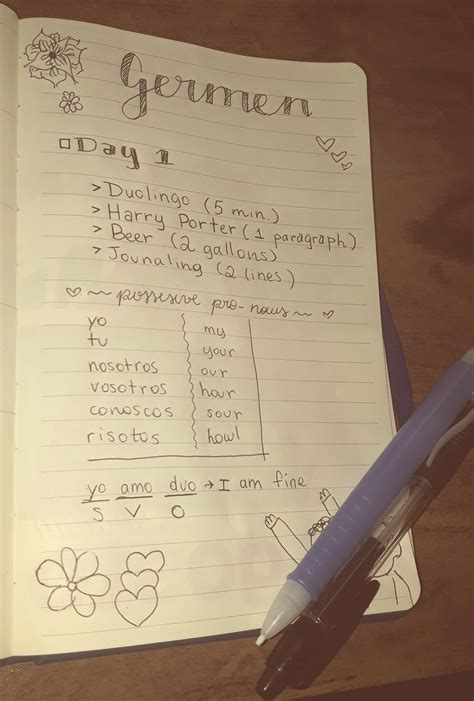 Germen
Day 1
> Duolingo (5 min.)
> Harry Porter (1 paragraph)
> Beer (2 gallons)
> Jounaling (2 lines)
possesive pro-nous
yo my
tu your
nosotros our
vosotros hour
conoscos sour
risotos howl
yo amo duo → I am fine
S V O